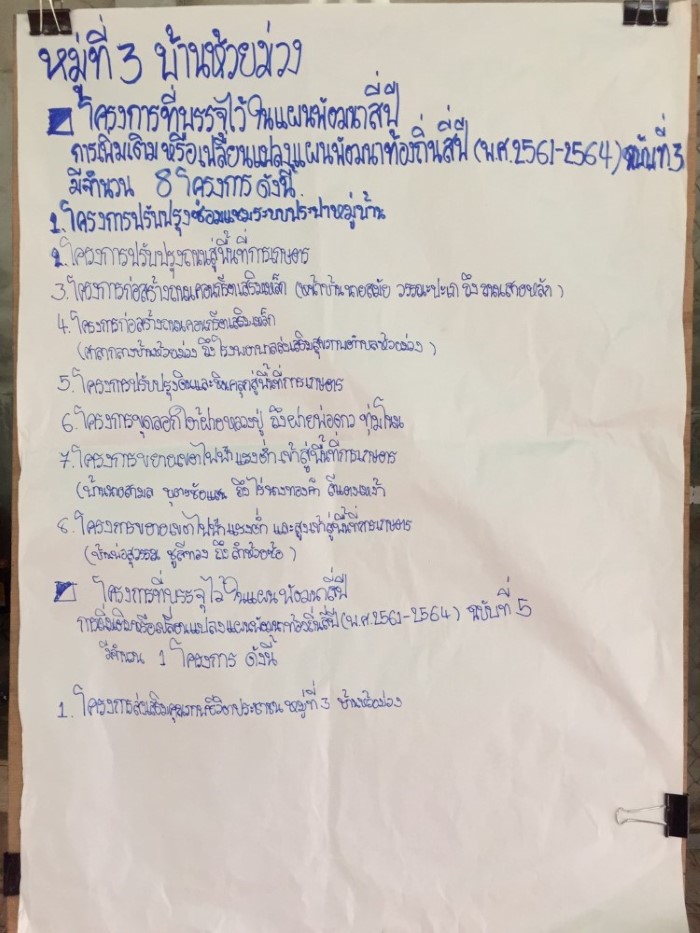 หมู่ที่ 3 บ้านห้วยม่วง
โครงการที่บรรจุไว้ในแผนพัฒนาสี่ปี
การเพิ่มเติมหรือเปลี่ยนแปลงแผนพัฒนาท้องถิ่นสี่ปี (พ.ศ.2561-2564) ฉบับที่ 3
มีจำนวน 8 โครงการ ดังนี้.
1. โครงการปรับปรุงซ่อมแซมระบบประปาหมู่บ้าน
2. โครงการปรับปรุงถนนสู่พื้นที่การเกษตร
3. โครงการก่อสร้างถนนคอนกรีตเสริมเหล็ก (หน้าบ้านนายสมัย วรรณะปะเก ถึง ถนนสายหลัก)
4. โครงการก่อสร้างถนนคอนกรีตเสริมเหล็ก
(ศาลากลางบ้านห้วยม่วง ถึง โรงพยาบาลส่งเสริมสุขภาพตำบลห้วยม่วง)
5. โครงการปรับปรุงดินและหินคลุกสู่พื้นที่การเกษตร
6. โครงการขุดลอกใต้ฝายหลวงปู่ ถึงฝายพ่อดาว ทุ่มโหม
7. โครงการขยายเขตไฟฟ้าแรงต่ำเข้าสู่พื้นที่การเกษตร
(บ้านนายสามล ถึง ไร่นางทองคำ)
8. โครงการขยายเขตไฟฟ้าแรงต่ำ และสูงเข้าสู่พื้นที่การเกษตร
(บ้านพ่อสุวรรณ ชูสีทอง ถึง ลำห้วยซ้อ)
โครงการที่บรรจุไว้ในแผนพัฒนาสี่ปี
การเพิ่มเติมหรือเปลี่ยนแปลงแผนพัฒนาท้องถิ่นสี่ปี (พ.ศ.2561-2564) ฉบับที่ 5
มีจำนวน 1 โครงการ ดังนี้
1. โครงการส่งเสริมคุณภาพชีวิตประชาชน หมู่ที่ 3 บ้านห้วยม่วง